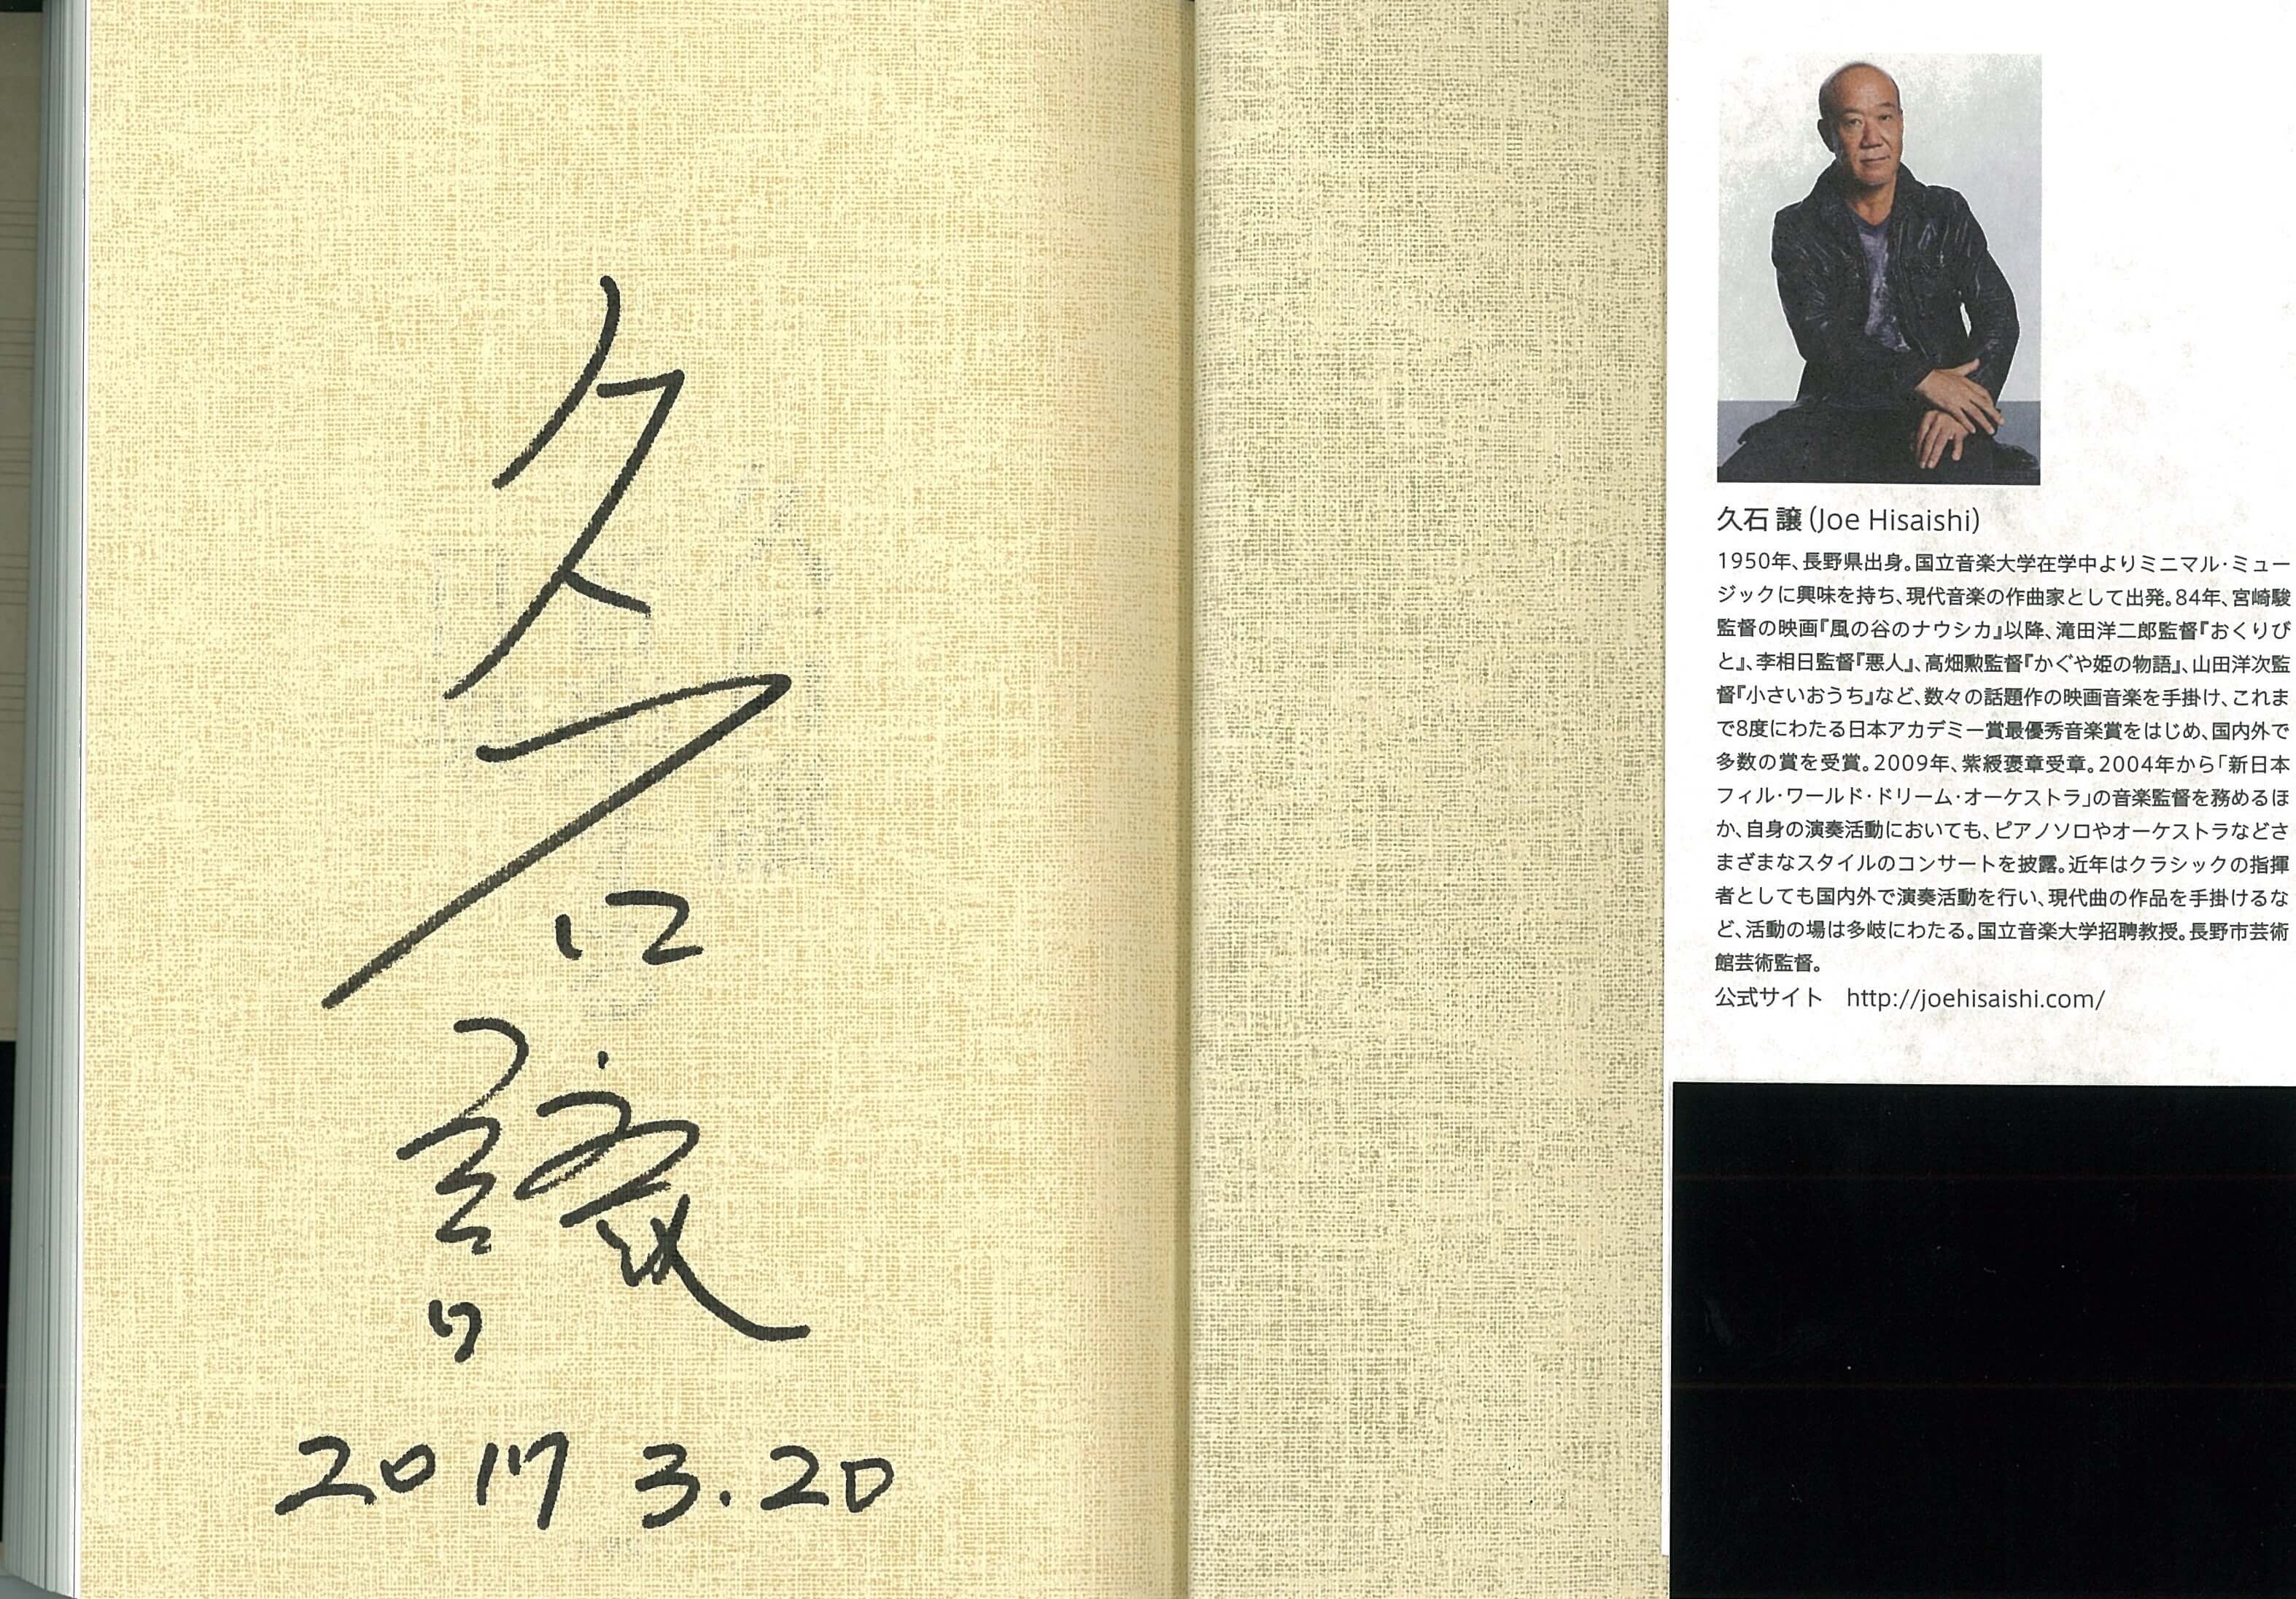 久石譲
2017 3.20
久石 譲 (Joe Hisaishi)
1950年、長野県出身。国立音楽大学在学中よりミニマル・ミュー
ジックに興味を持ち、現代音楽の作曲家として出発。84年、宮崎駿
監督の映画『風の谷のナウシカ』以降、滝田洋二郎監督『おくりび
と』、李相日監督『悪人』、高畑勲監督『かぐや姫の物語』、山田洋次監
督『小さいおうち』など、数々の話題作の映画音楽を手掛け、これま
で8度にわたる日本アカデミー賞最優秀音楽賞をはじめ、国内外で
多数の賞を受賞。2009年、紫綬褒章受章。2004年から「新日本
フィル・ワールド・ドリーム・オーケストラ」の音楽監督を務めるほ
か、自身の演奏活動においても、ピアノソロやオーケストラなどさ
まざまなスタイルのコンサートを披露。近年はクラシックの指揮
者としても国内外で演奏活動を行い、現代曲の作品を手掛けるな
ど、活動の場は多岐にわたる。国立音楽大学招聘教授。長野市芸術
館芸術監督。
公式サイト　http://joehisaishi.com/